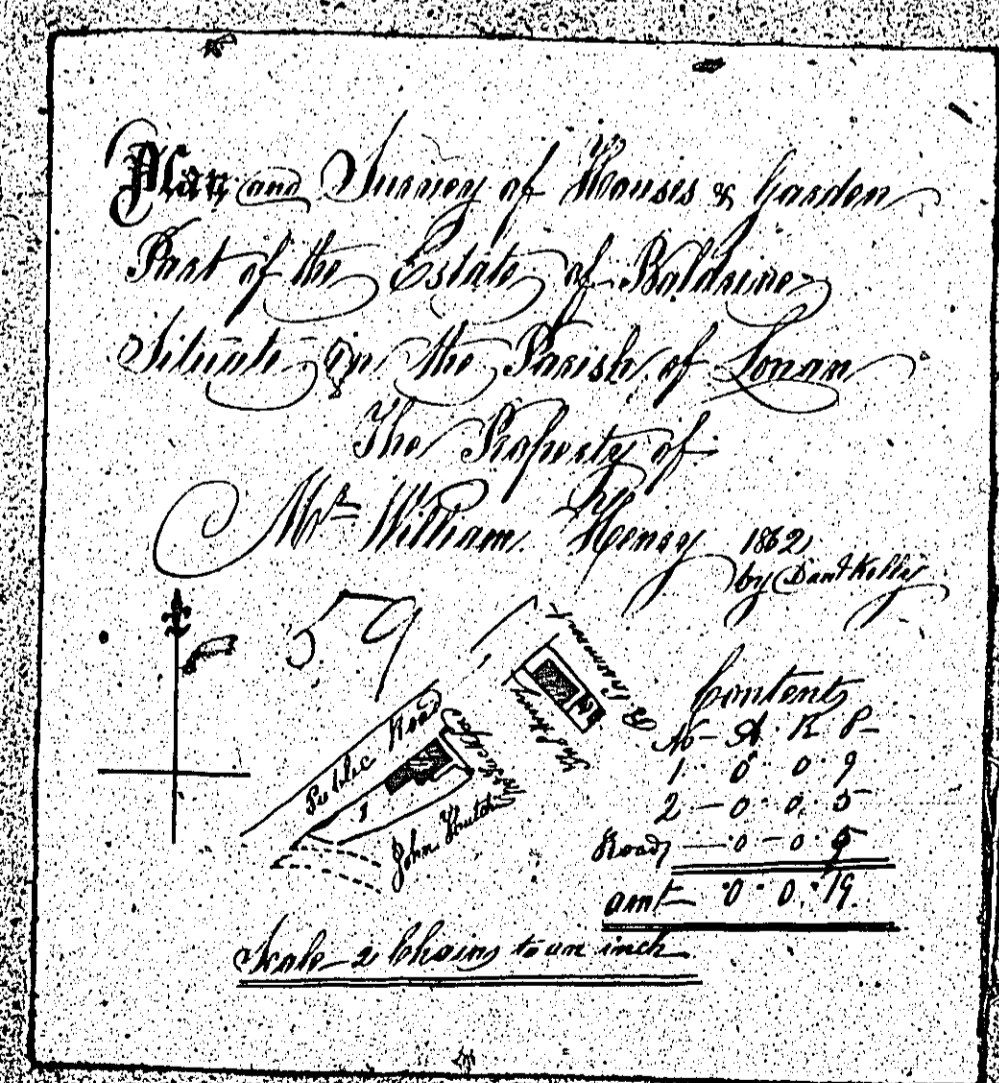 Plan and Survey of Houses & Garden
Part of the Estate of Baldrine
Situate in the Parish of Lonan
The Property of
Mr William Henry 1862
by Danl Kelly
59
Public Road
1
John
Contents
No - A. R. P-
1 0 0 9
2 - 0 0 5
Road - 0 - 0 5
amt - 0 0 19
Scale - 2 Chains to an inch